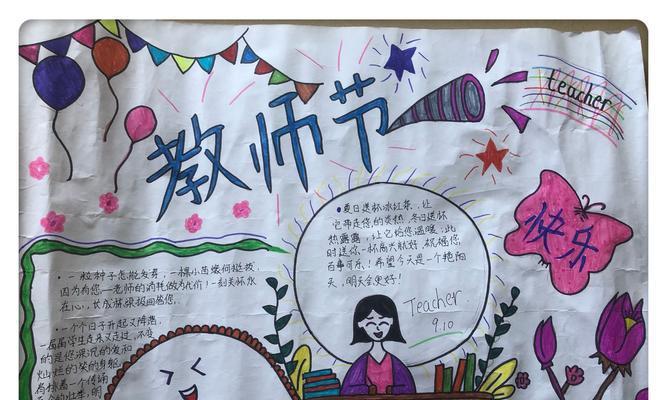 教师节
teacher
快乐
•夏日送杯冰红茶，让
它带走您的炎热，冬日送杯
热露露，让它给您温暖，此
时送你一杯高兴就好，祝福您
百事可乐！希望今天是一个艳阳
天，明天会更好！
Teacher.
9.10
•一粒种子怎能发育，一棵小苗缘何挺拔，
因为有您—老师的消耗做为代价！一刻关怀永
在心，长成林很报回答您。
•一个个日子升起又降落，
一届届学生走来又走过，不变
的是您深沉的爱和
灿烂的笑的身躯